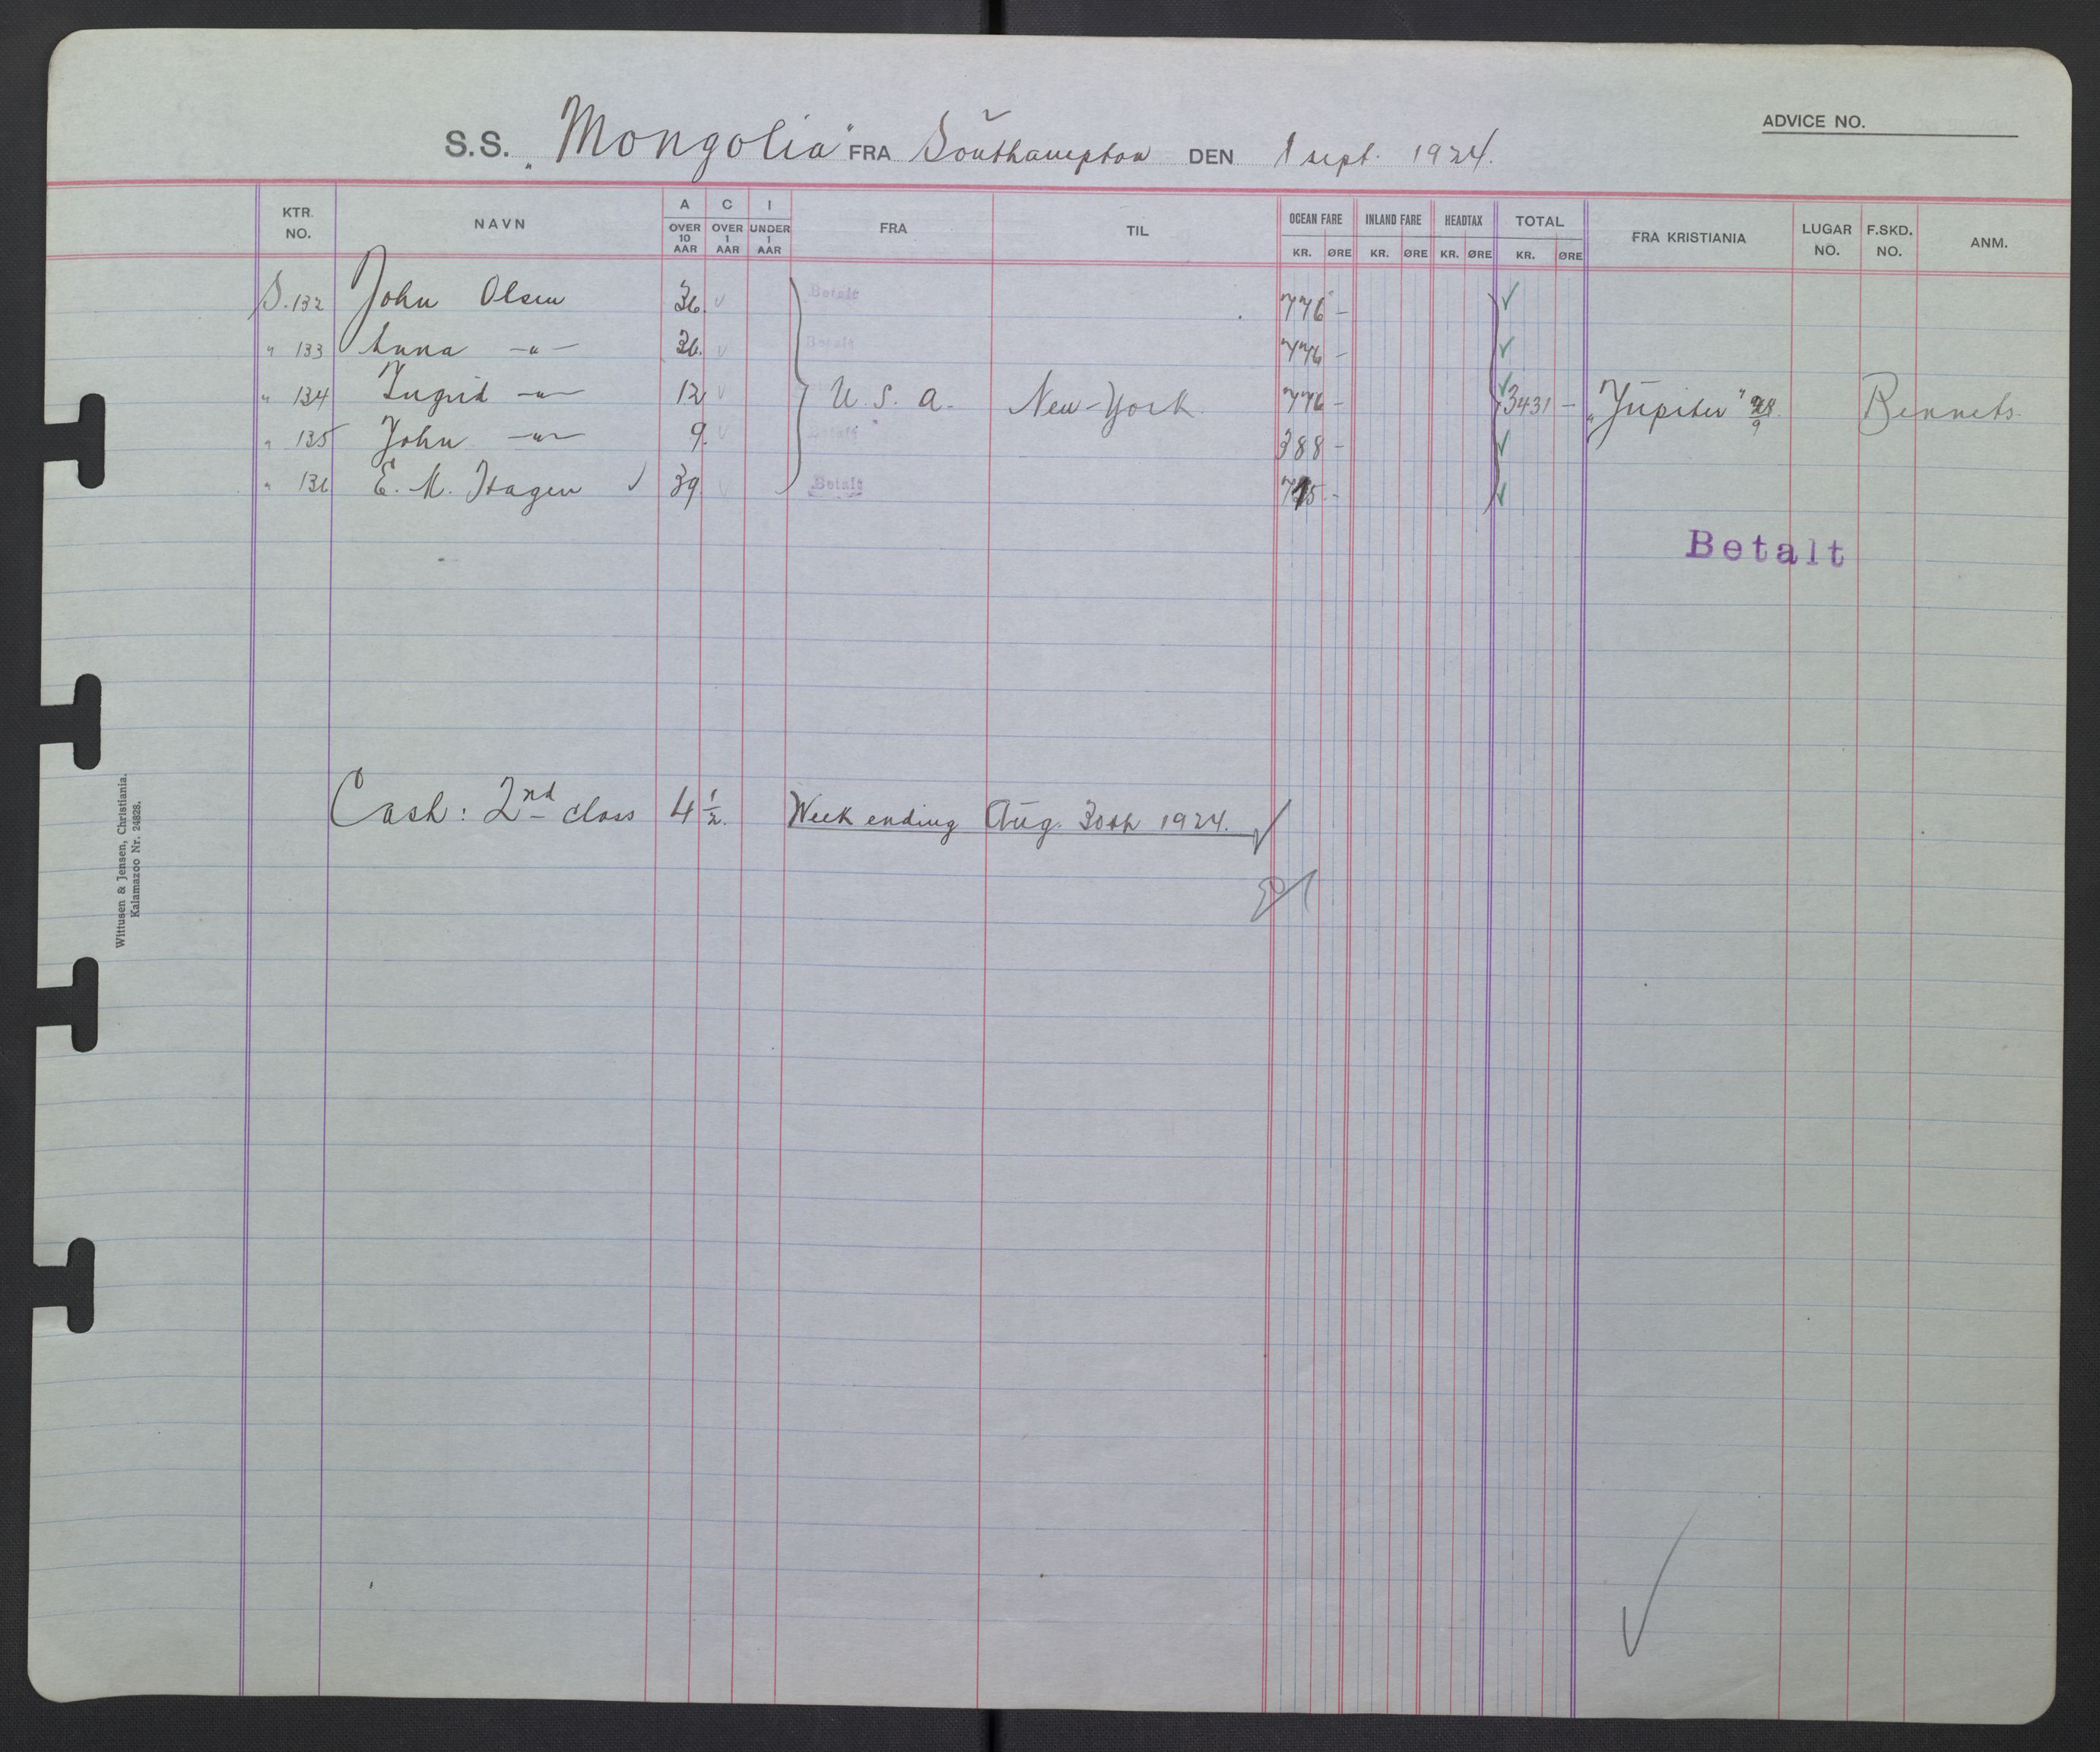 S.S. „Mongolia" FRA Southampton DEN 1 sept. 1924.
ADVICE NO.
KTR. NO. NAVN A OVER 10 AAR C OVER 1 AAR I UNDER 1 AAR FRA TIL OCEAN FARE KR. ØRE INLAND FARE KR. ØRE HEADTAX KR. ØRE TOTAL KR. ØRE FRA KRISTIANIA LUGAR NO. F.SKD. NO. ANM.
S. 132 John Olsen 36. Betalt 776 -
" 133 Anna -"- 36. Betalt 776 -
" 134 Ingrid -"- 12 U. S. A. New-York 776 - 3431 - „Jupiter" 28/9 Bennets
" 135 John -"- 9. Betalt 388 -
" 136 E. M. Hagen 39. Betalt 715 -
Betalt
Cash: 2nd class 4 1/2. Week ending Aug. 30th 1924.
Wittusen & Jensen, Christiania.
Kalamazoo Nr. 24828.